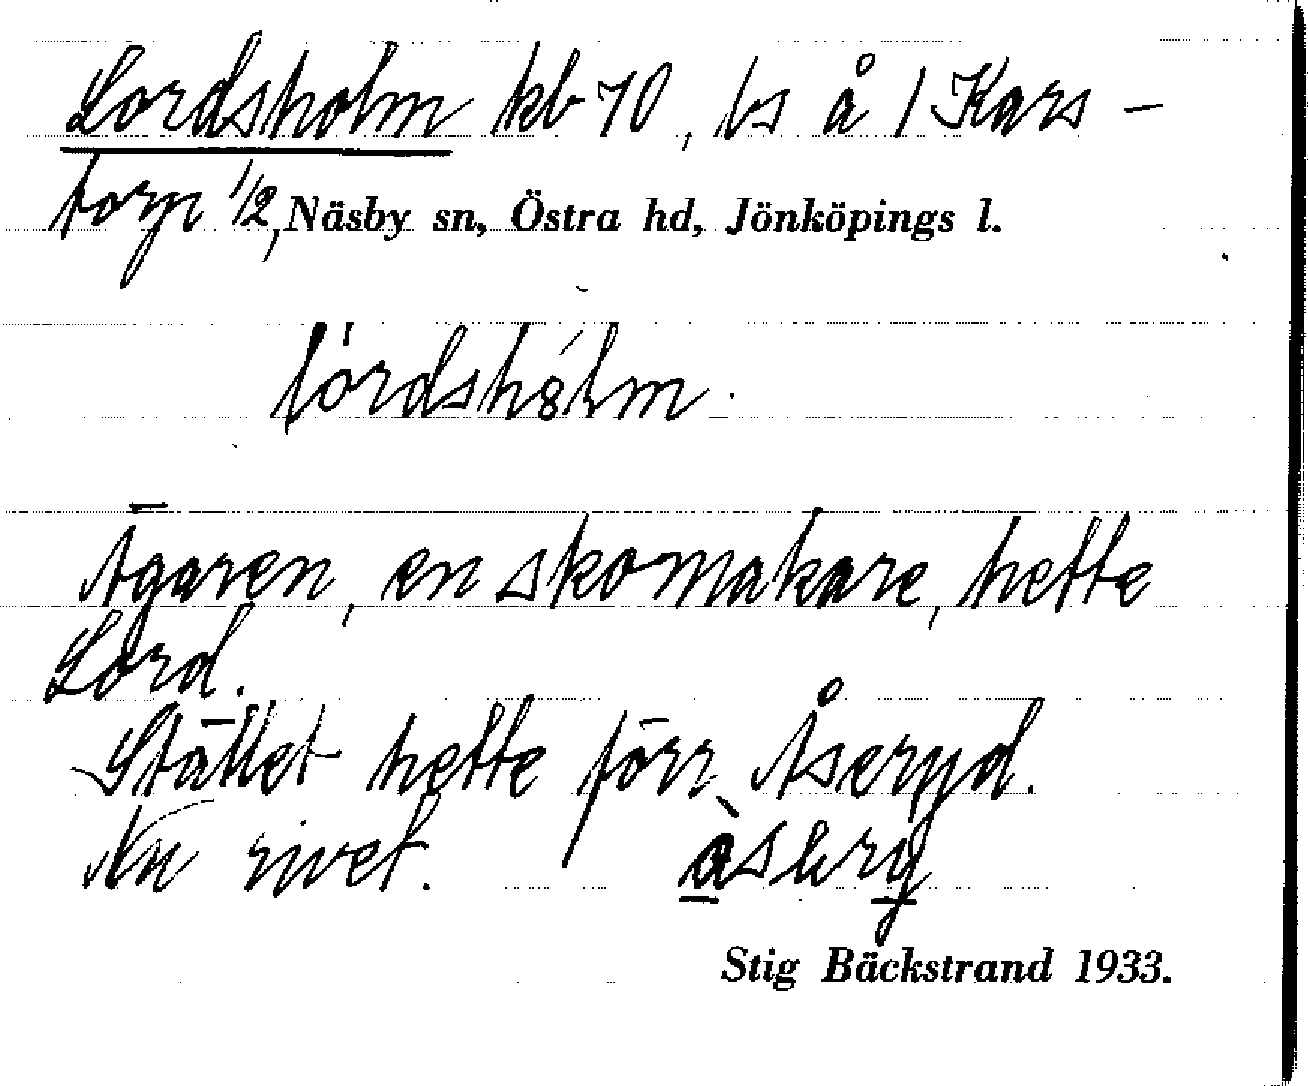 Lordsholm kb 70, bs å 1 Kars-
torp 1/2, Näsby sn, Östra hd, Jönköpings l.
lórdshólm.
Ägaren, en skomakare, hette
Lord.
Stället hette förr Åseryd.
Nu rivet. àsery
Stig Bäckstrand 1933.